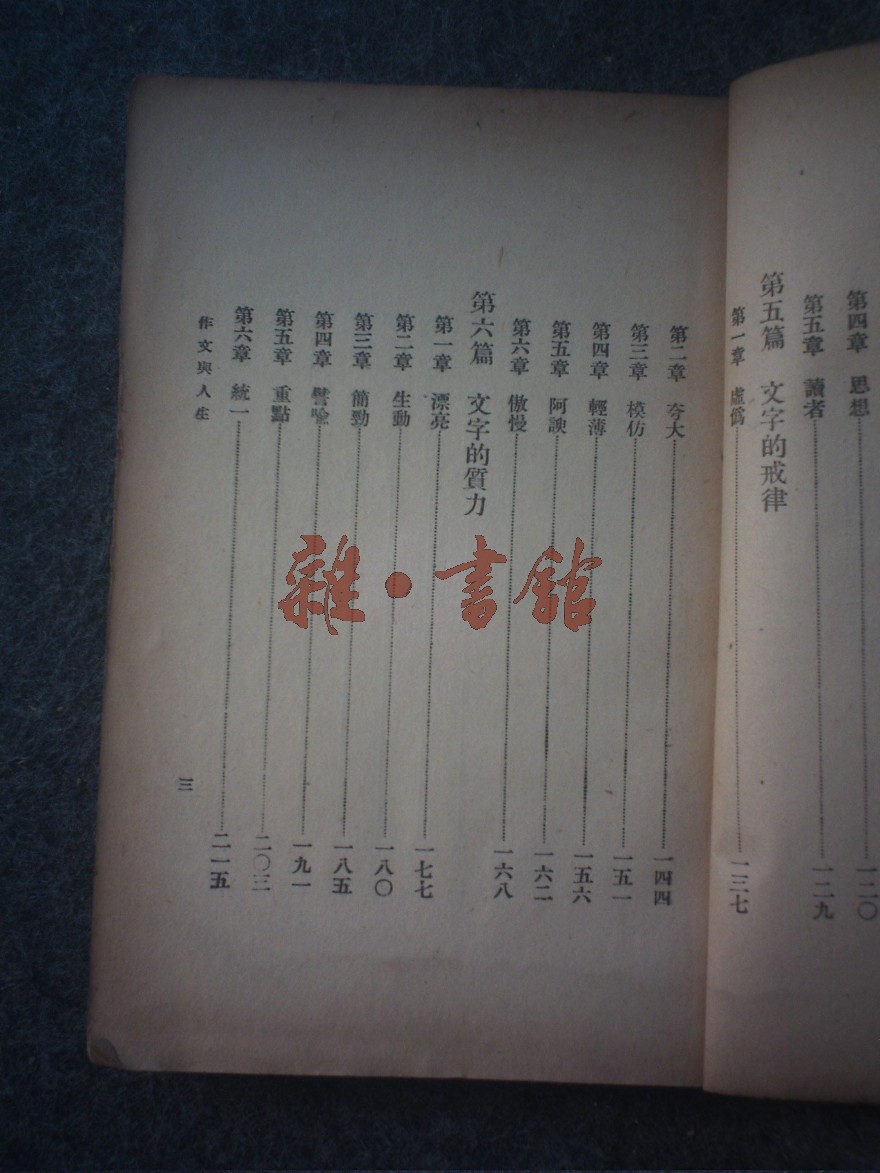 第四章　思想 一二〇
第五章　讀者 一二九
第五篇　文字的戒律
第一章　虛偽 一三七
第二章　夸大 一四四
第三章　模仿 一五一
第四章　輕薄 一五六
第五章　阿諛 一六二
第六章　傲慢 一六八
第六篇　文字的質力
第一章　漂亮 一七七
第二章　生動 一八〇
第三章　簡勁 一八五
第四章　譬喻 一九一
第五章　重點 二〇三
第六章　統一 二一五
作文與人生
三
雜·書館